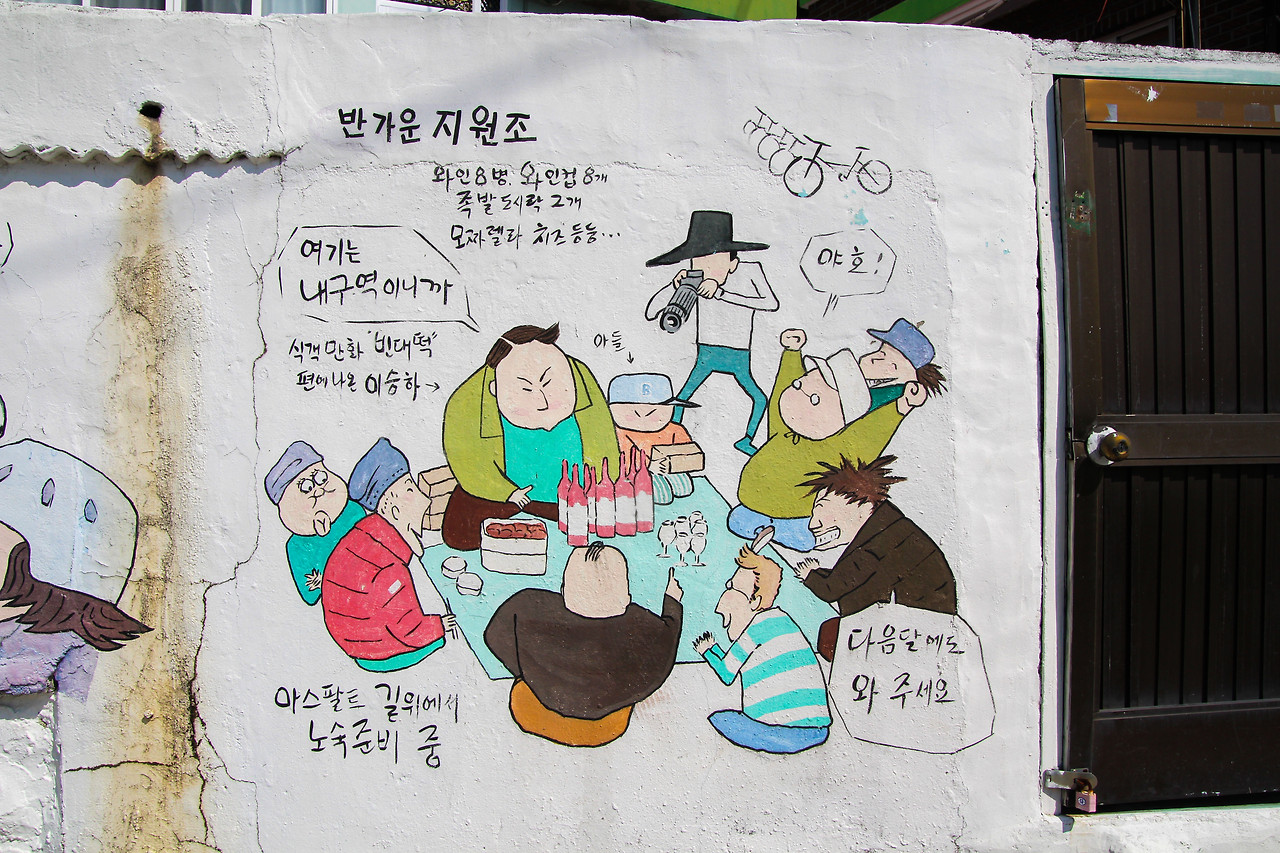 반가운 지원조
와인 8병. 와인컵 8개
족발도시락 2개
모짜렐라 치즈 등등...
여기는
내구역이니까
야호!
식객 만화 "빈대떡"
편에 나온 이승하→
아들
B
다음달에도
와 주세요
아스팔트 길위에서
노숙준비 중